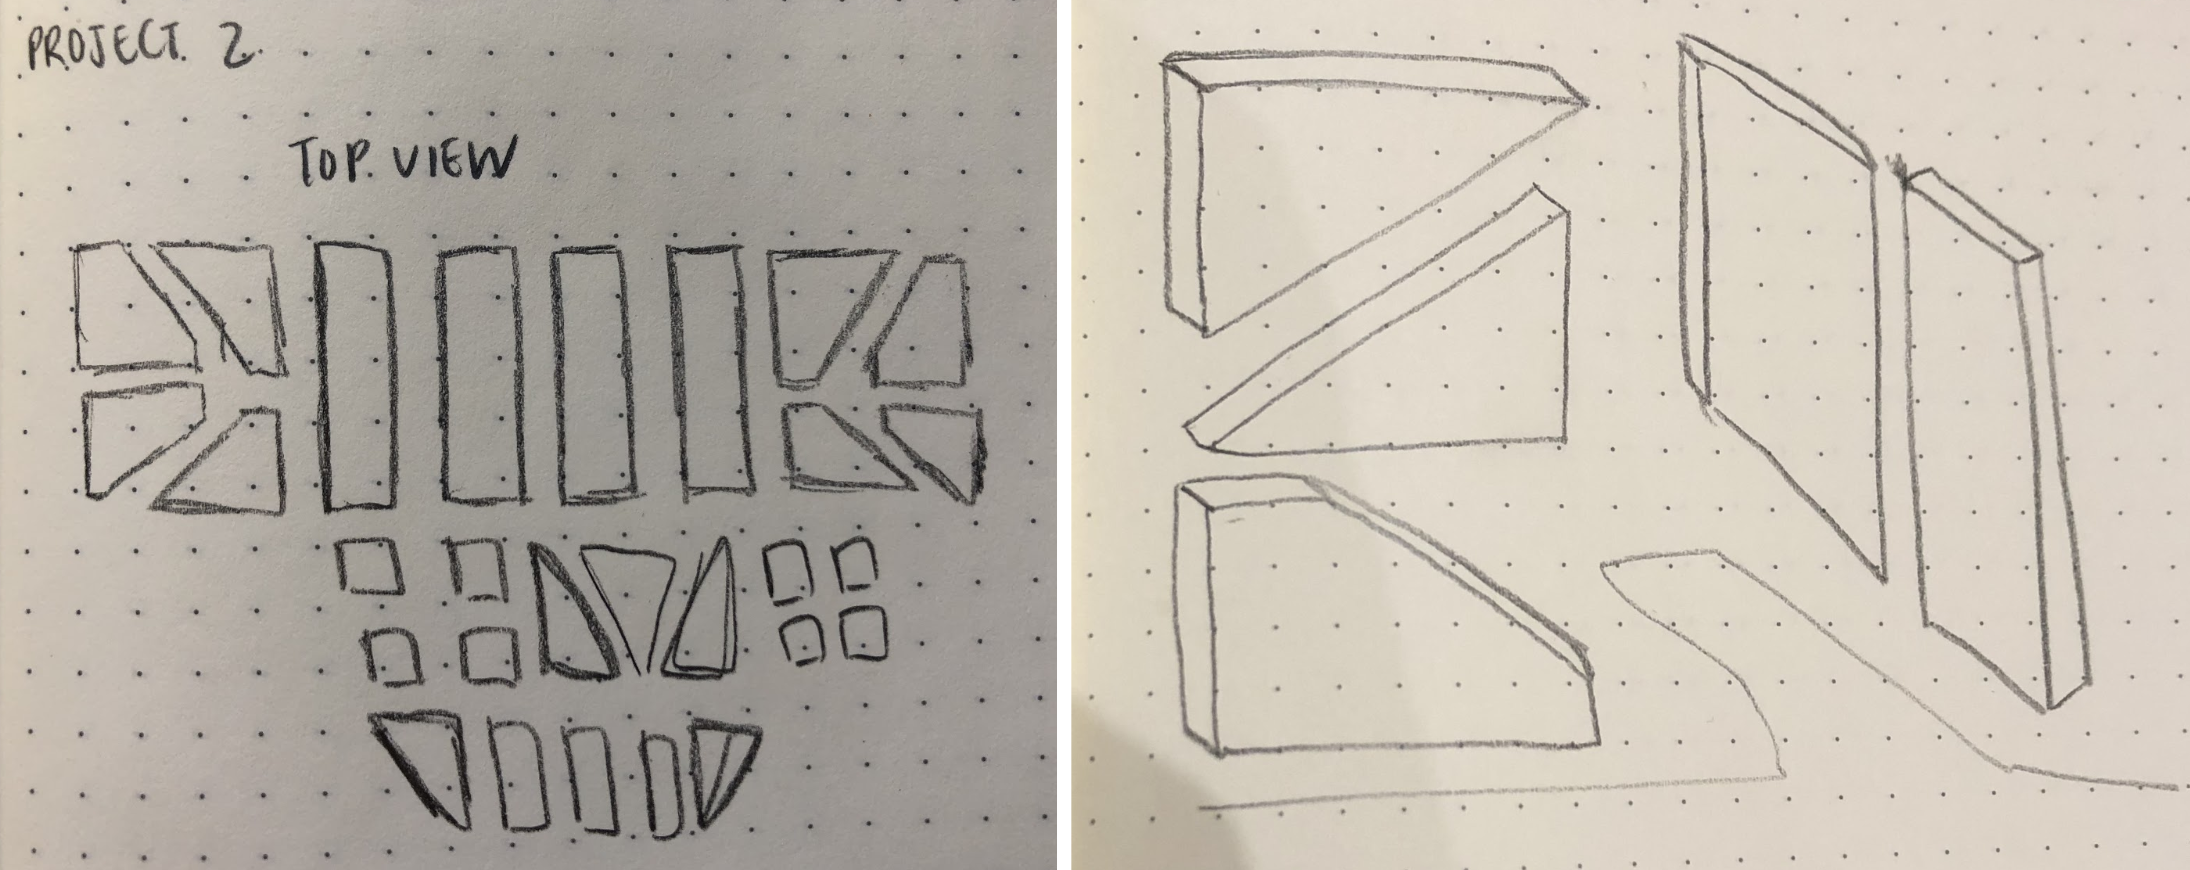 PROJECT 2.
TOP VIEW